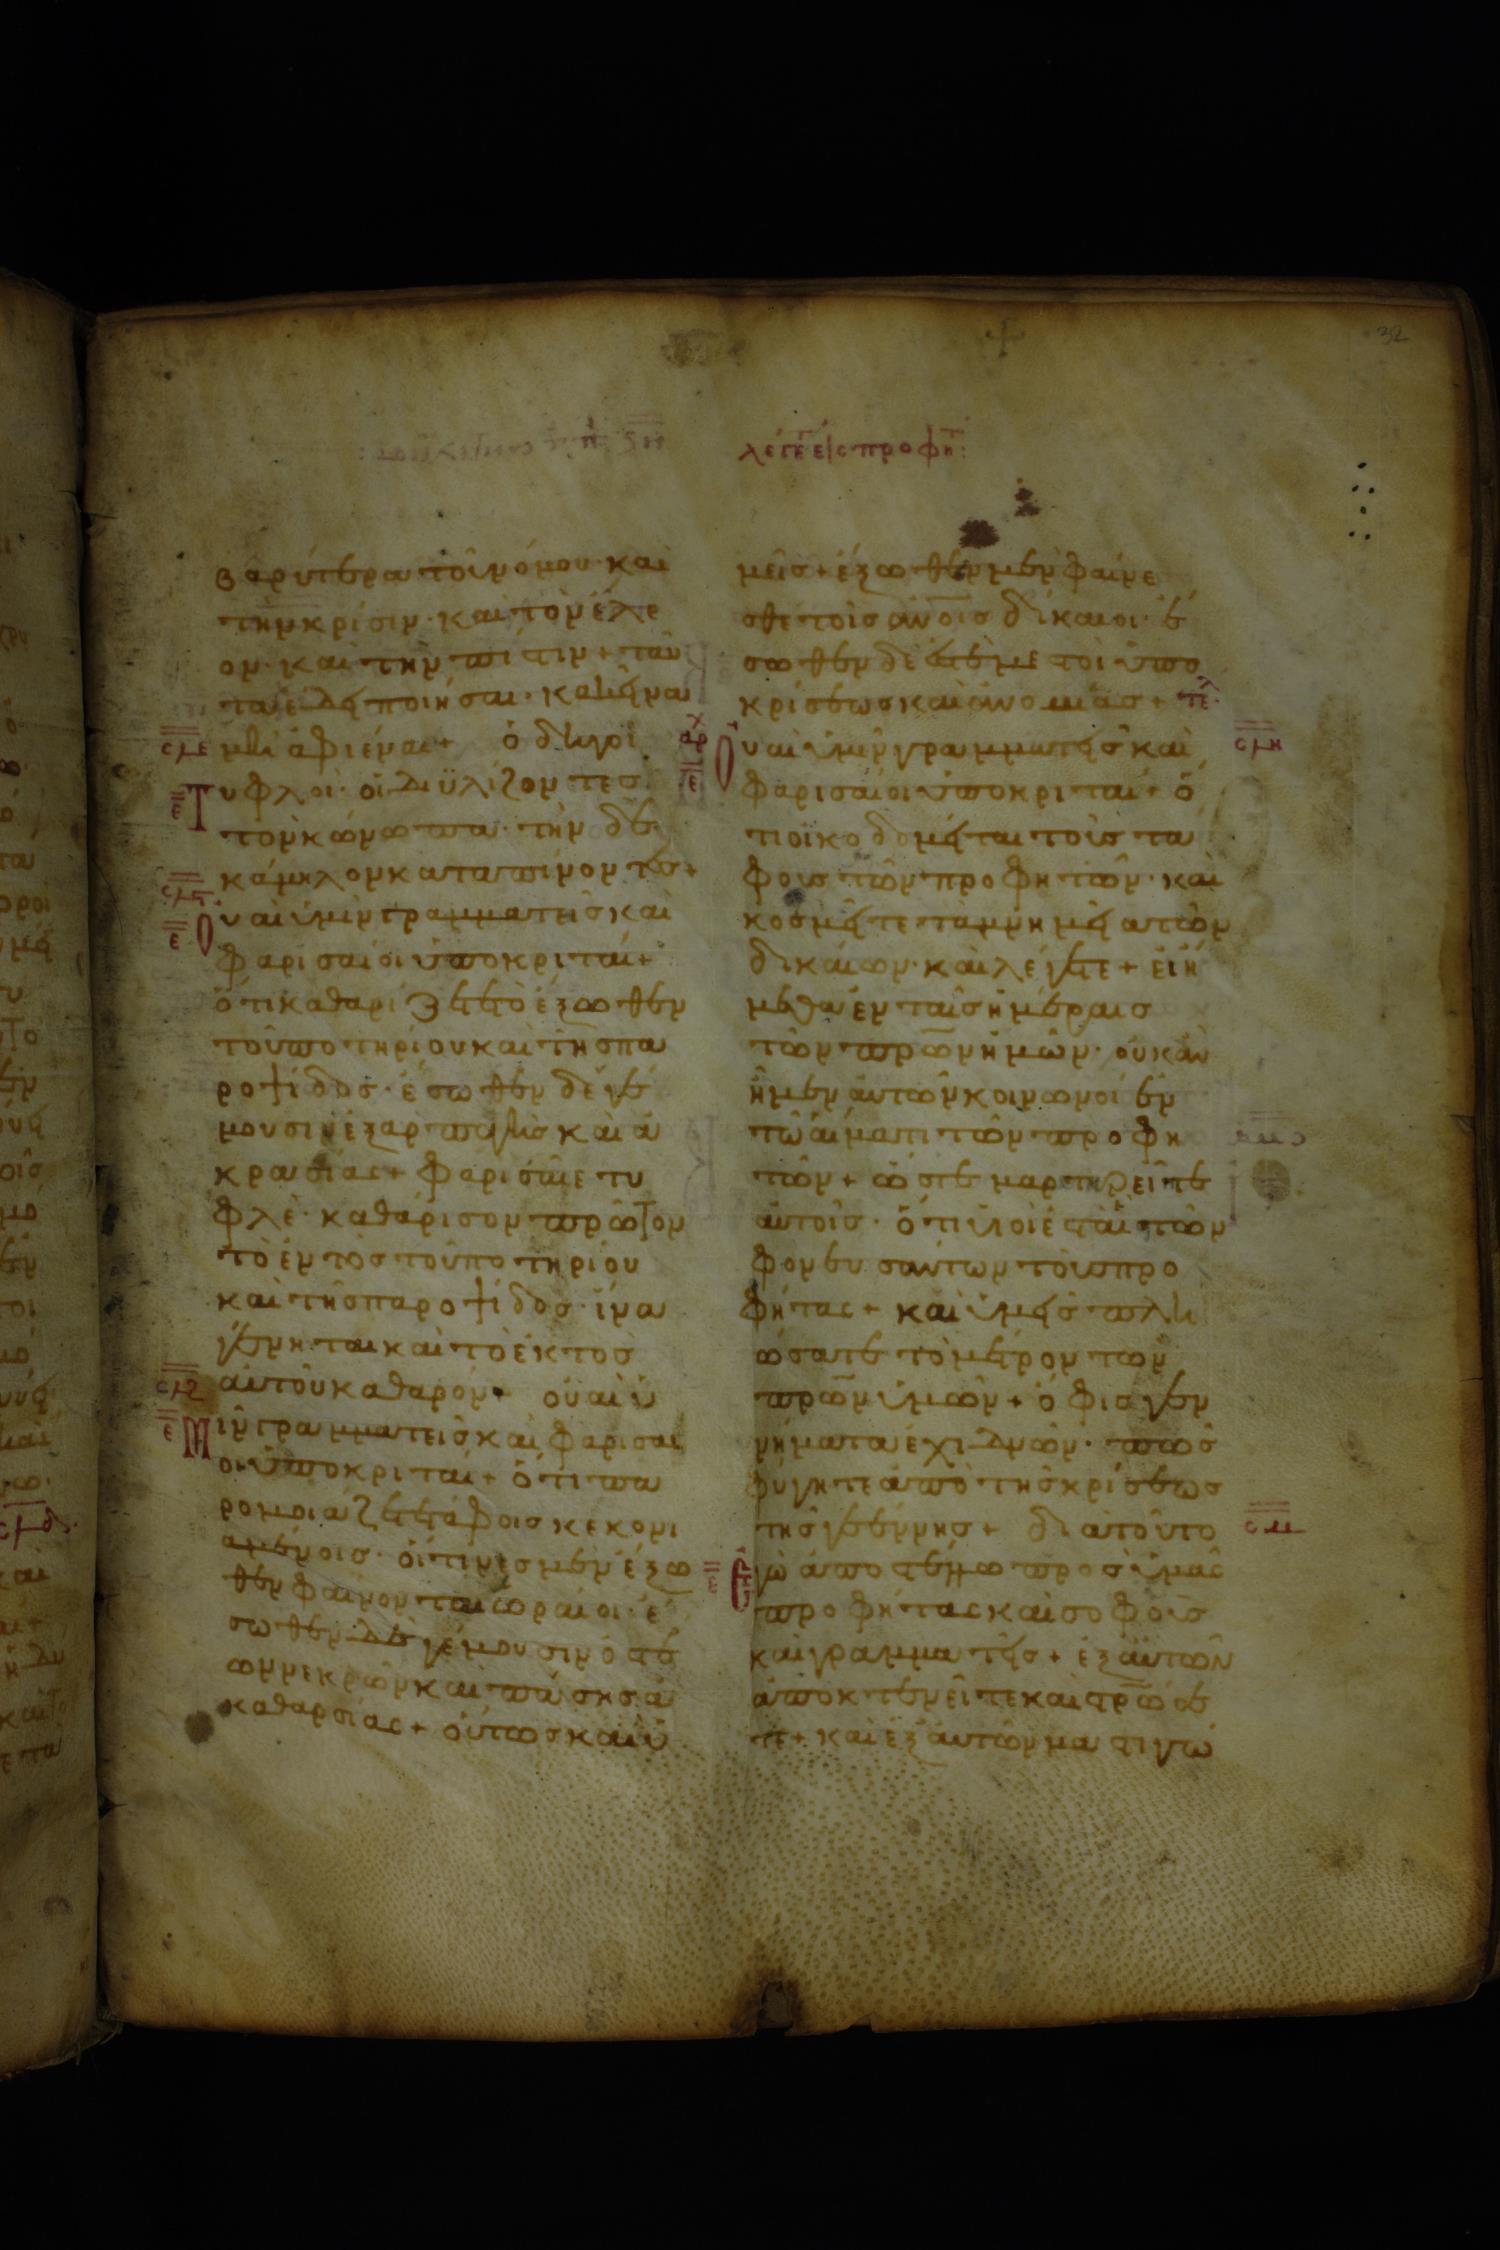 32
λέγετε εἰς προφη:
βαρύτερα τοῦ νόμου· καὶ
τὴν κρίσιν· καὶ τὸν ἔλε
ον· καὶ τὴν πίστιν + ταῦ
τα ἔδει ποιῆσαι· κἀκεῖνα
σμε μὴ ἀφιέναι + ὁδηγοὶ
ε Τυφλοὶ· οἱ διϋλίζοντες
τὸν κώνωπα· τὴν δὲ
κάμηλον καταπίνοντες +
σμς
ε Οὐαὶ ὑμῖν γραμματεῖς καὶ
φαρισαῖοι ὑποκριταί +
ὅτι καθαρίζετε τὸ ἔξωθεν
τοῦ ποτηρίου καὶ τῆς πα
ροψίδος· ἔσωθεν δὲ γέ
μουσιν ἐξ ἁρπαγῆς καὶ ἀ
κρασίας + φαρισαῖε τυ
φλὲ· καθάρισον πρῶτον
τὸ ἐντὸς τοῦ ποτηρίου
καὶ τῆς παροψίδος· ἵνα
γένηται καὶ τὸ ἐκτὸς
σμζ αὐτοῦ καθαρόν + οὐαὶ ὑ
ε Μῖν γραμματεῖς καὶ φαρισαῖ
οι ὑποκριταί + ὅτι πα
ρομοιάζετε τάφοις κεκονι
αμένοις· οἵτινες μὲν ἔξω
θεν φαίνονται ὡραῖοι· ἔ
σωθεν δὲ γέμουσιν ὀστέ
ων νεκρῶν καὶ πάσης ἀ
καθαρσίας + οὕτως καὶ ὑ
μεῖς + ἔξωθεν μὲν φαίνε
σθε τοῖς ἀνοις δίκαιοι· ἔ
σωθεν δέ ἐστε μεστοὶ ὑπο
κρίσεως καὶ ἀνομίας + τελ
αρχ Οὐαὶ ὑμῖν γραμματεῖς καὶ σμη
ε φαρισαῖοι ὑποκριταί + ὅ
τι οἰκοδομεῖται τοὺς τά
φους τῶν προφητῶν· καὶ
κοσμεῖτε τὰ μνημεῖα τῶν
δικαίων· καὶ λέγετε + εἰ ἤ
μεθα ἐν ταῖς ἡμέραις
τῶν πρων ἡμῶν· οὐκ ἂν
ἦμεν αὐτῶν κοινωνοὶ ἐν
τῷ αἵματι τῶν προφη
τῶν + ὥστε μαρτυρεῖτε
αὐτοῖς· ὅτι υἱοί ἐσται τῶν
φονευσάντων τοὺς προ
φήτας + καὶ ὑμεῖς πλη
ώσατε τὸ μέτρον τῶν
πρων ὑμῶν + ὄφις γεν
νήματα ἐχιδνῶν· πῶς
φύγητε ἀπὸ τῆς κρίσεως
τῆς γεέννης + διὰ τοῦτο σμ
ε Ἐγὼ ἀποστέλλω πρὸς ὑμᾶς
προφήτας καὶ σοφοὺς
καὶ γραμματεῖς + ἐξ αὐτῶν
ἀποκτενεῖτε καὶ στρώσε
τε + καὶ ἐξ αὐτῶν μαστιγώ